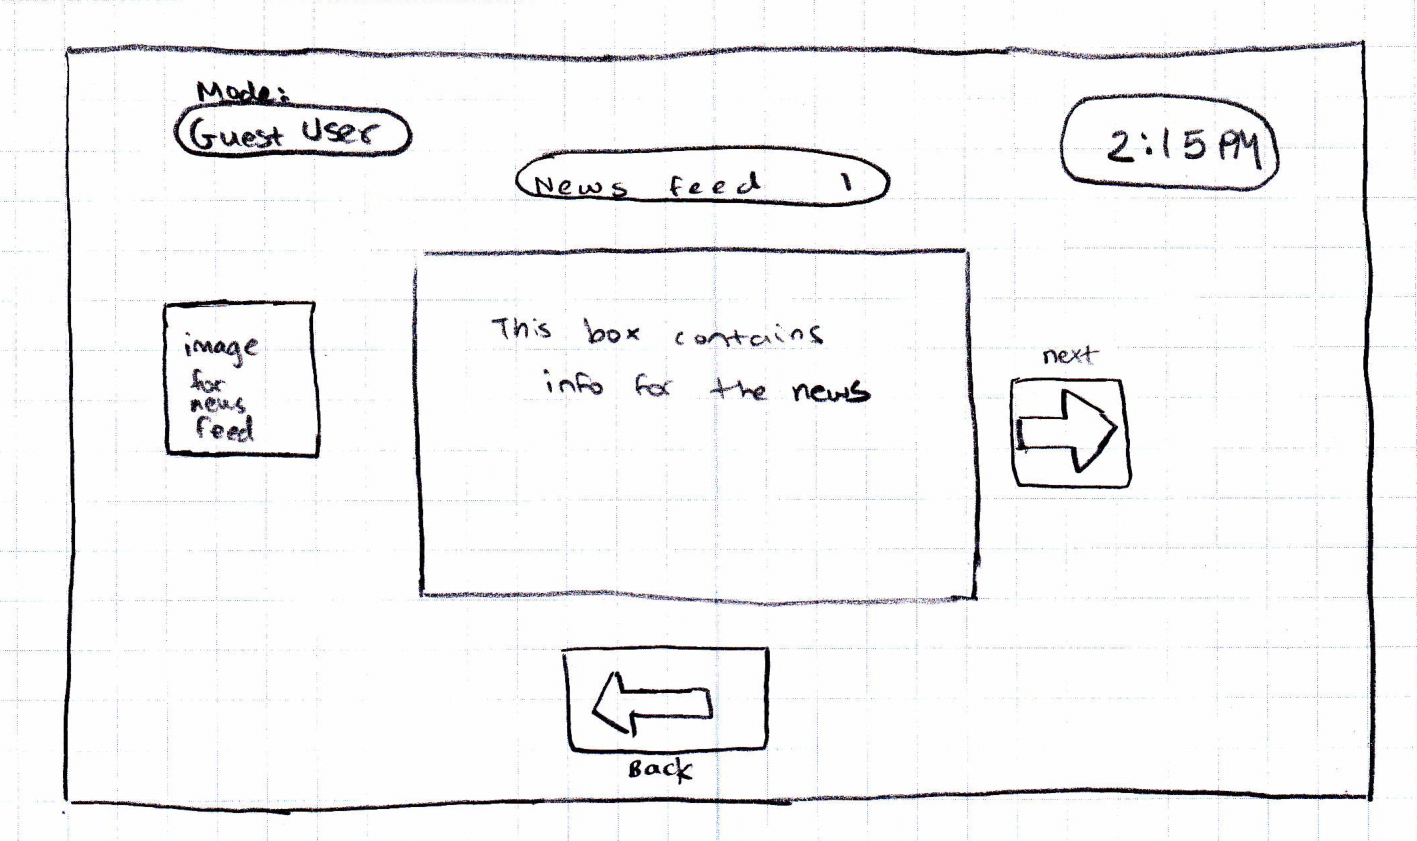 Mode:
Guest User
2:15 PM
News feed 1
image
for
news
feed
This box contains
info for the news
next
Back